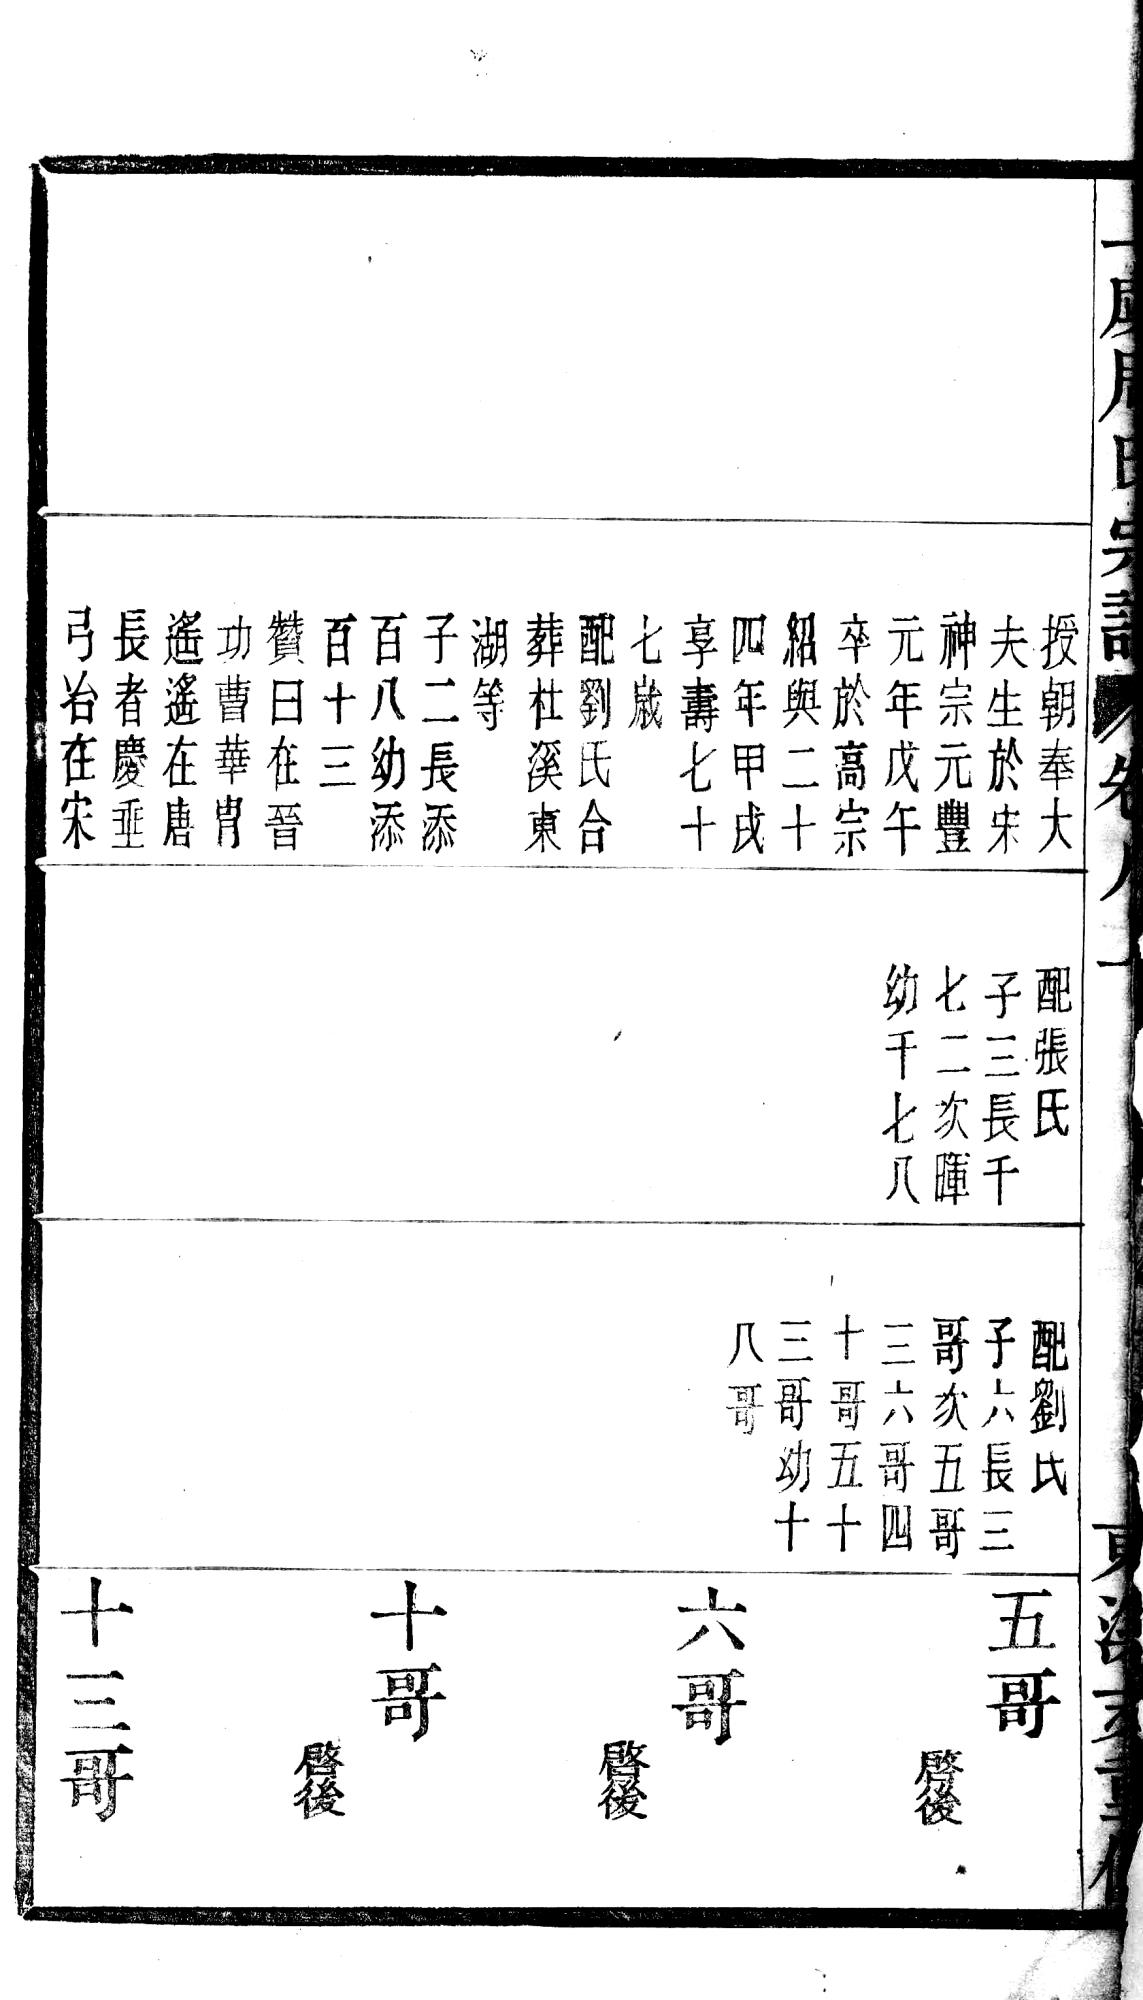 授朝奉大
夫生於宋
神宗元豐
元年戊午
卒於高宗
紹興二十
四年甲戌
享壽七十
七歲
配劉氏合
葬杜溪東
湖等
子二長添
百八幼添
百十三
贊曰在晉
功曹華胄
遙遙在唐
長者慶垂
弓冶在宋
配張氏
子三長千
七二次暉
幼千七八
配劉氏
子六長三
哥次五哥
三六哥四
十哥五十
三哥幼十
八哥
五哥
啓後
六哥
啓後
十哥
啓後
十三哥